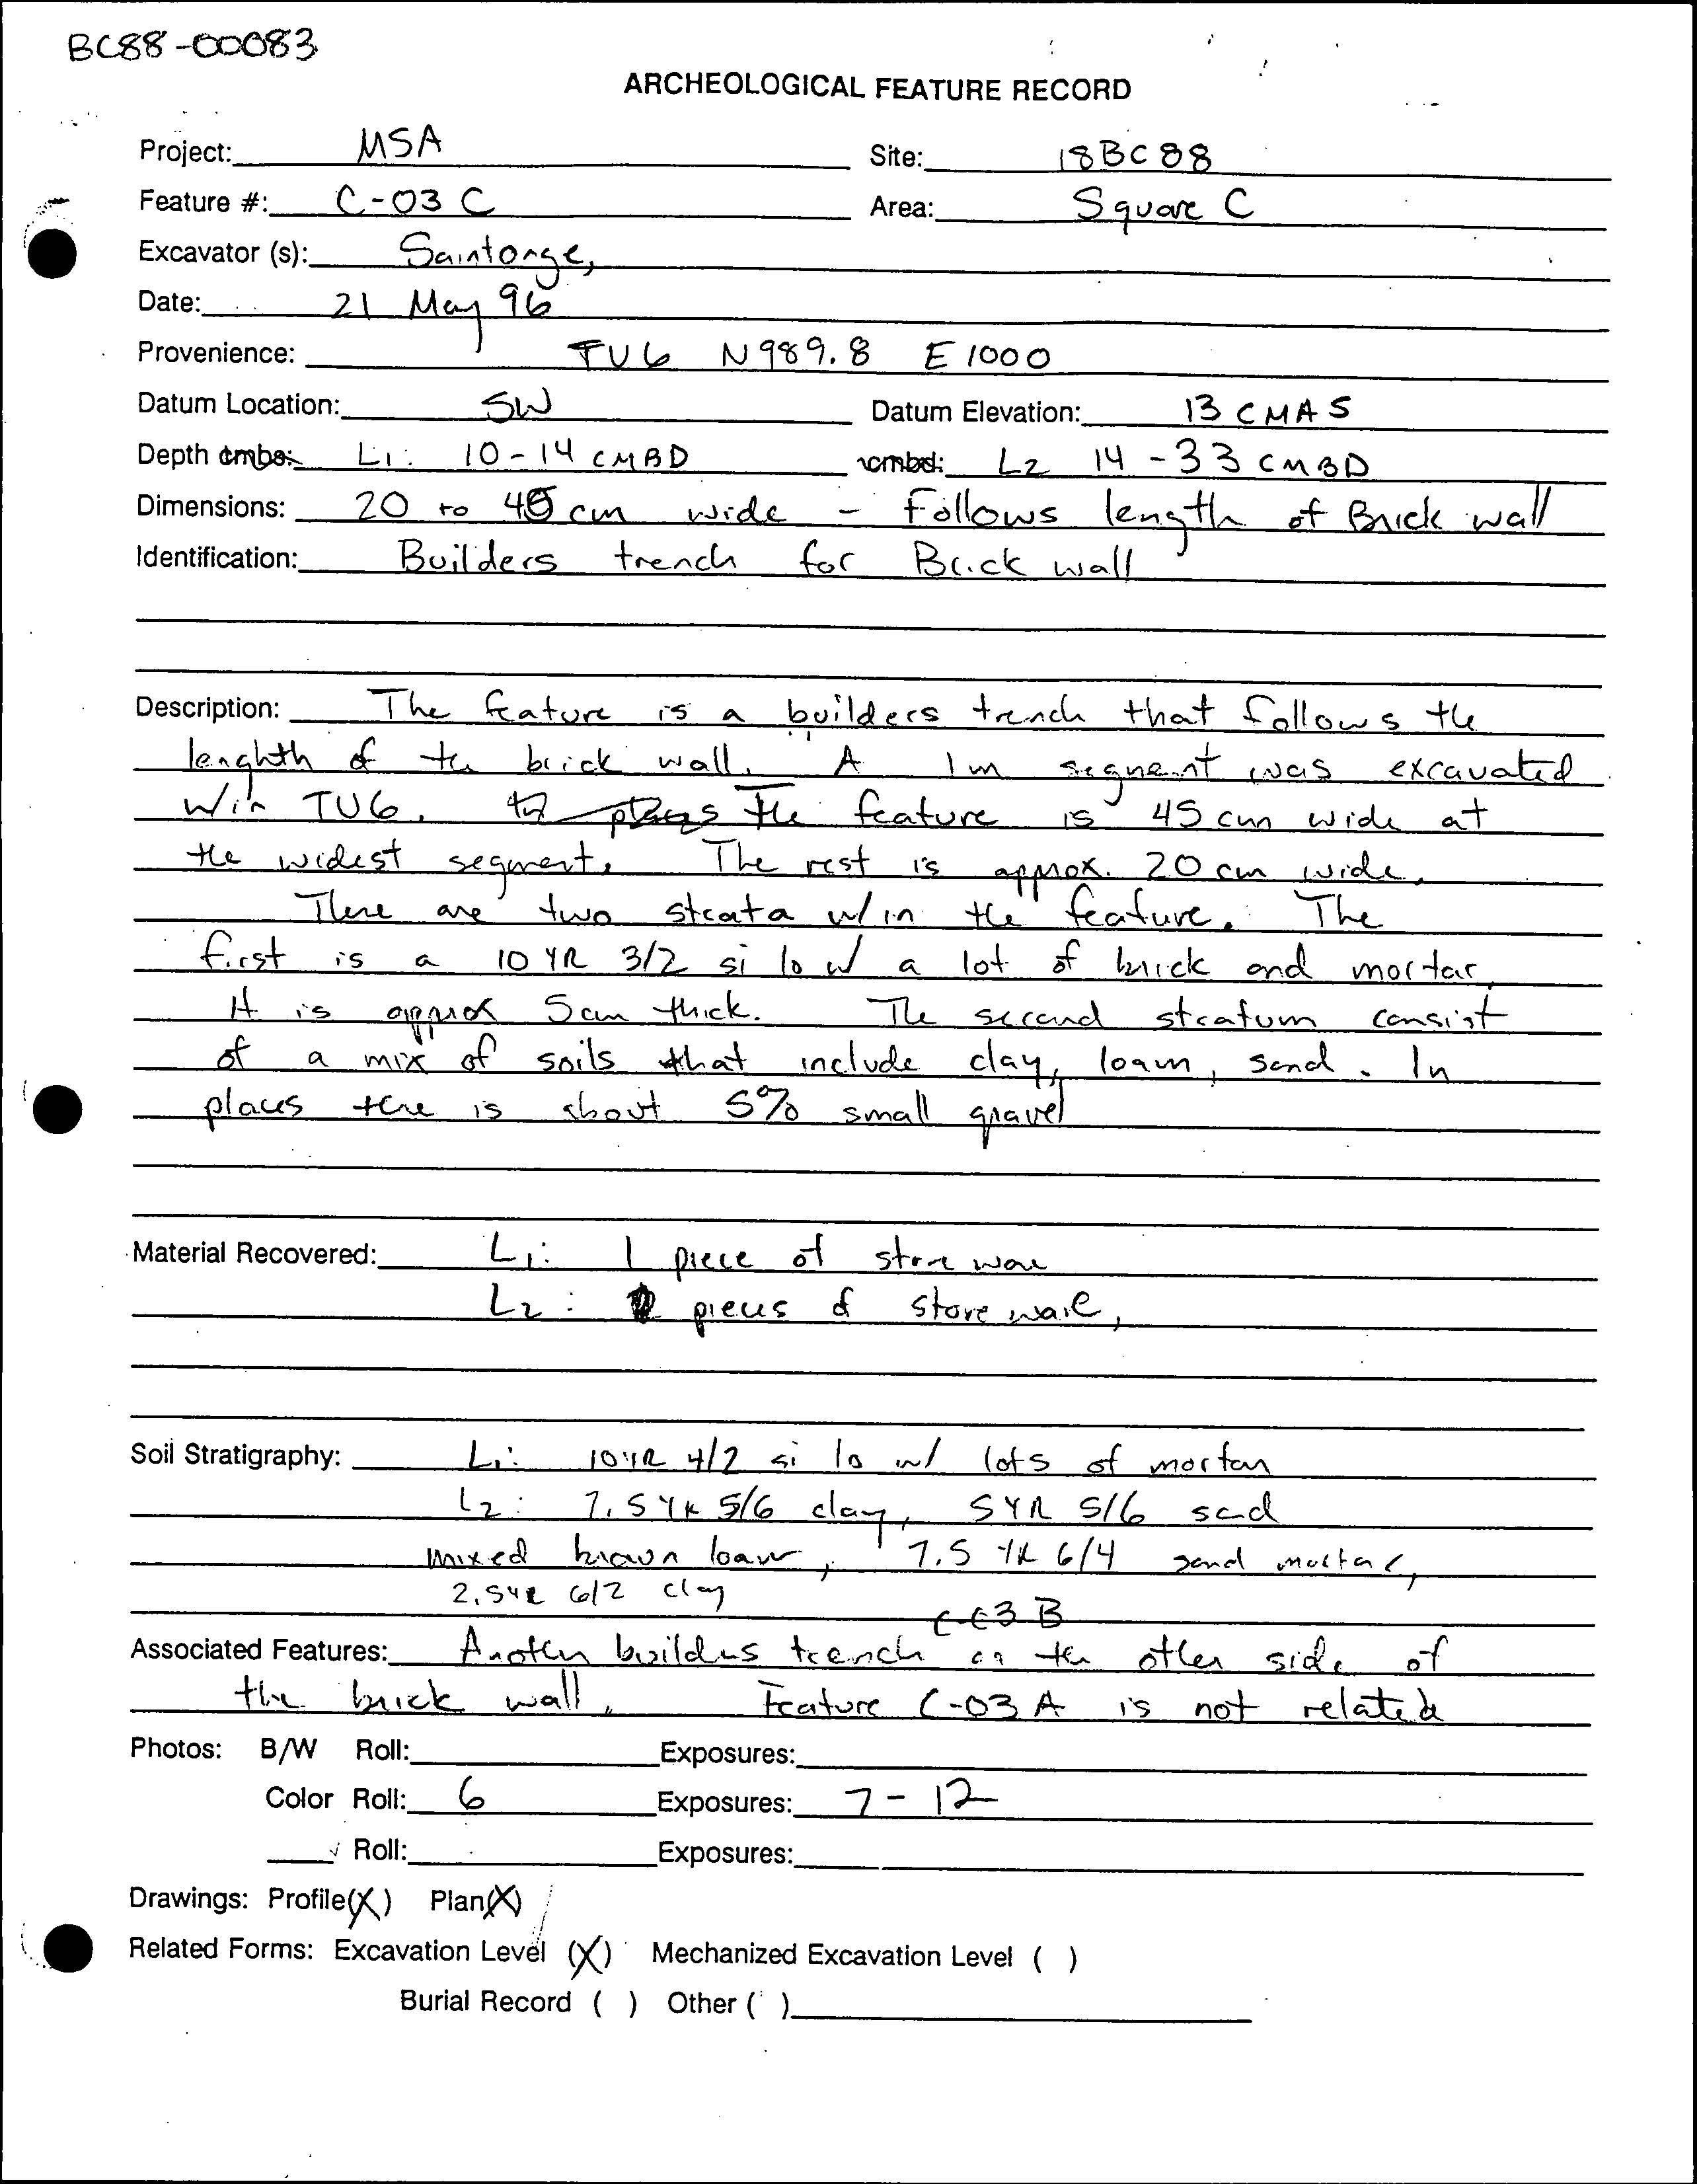 BC88-00083
ARCHEOLOGICAL FEATURE RECORD
Project: MSA Site: 18BC88
Feature #: C-03 C Area: Square C
Excavator (s): Saintonge,
Date: 21 May 96
Provenience: TU6 N989.8 E1000
Datum Location: SW Datum Elevation: 13 CMAS
Depth cmbs: L1: 10-14 CMBD cmbd: L2 14-33 CMBD
Dimensions: 20 to 45 cm wide - Follows length of Brick wall
Identification: Builders trench for Brick wall
Description: The feature is a builders trench that follows the
lenghth of the brick wall. A 1m segment was excavated
w/in TU6. The feature is 45 cm wide at
the widest segment. The rest is approx. 20 cm wide.
There are two strata w/in the feature. The
first is a 10 YR 3/2 si lo w/ a lot of brick and mortar
It is approx 5cm thick. The second stratum consist
of a mix of soils that include clay, loam, sand. In
places there is about 5% small gravel
Material Recovered: L1: 1 piece of stoneware
L2: pieces of stoneware,
Soil Stratigraphy: L1: 10YR 4/2 si lo w/ lots of mortar
L2: 7.5 YR 5/6 clay, 5YR 5/6 sand
mixed brown loam, 7.5 YR 6/4 sand mortar,
2.5YR 6/2 clay
C-03 B
Associated Features: Another builders trench on the other side of
the brick wall. Feature C-03 A is not related
Photos: B/W Roll: Exposures:
Color Roll: 6 Exposures: 7-12
Roll: Exposures:
Drawings: Profile(X) Plan(X)
Related Forms: Excavation Level (X) Mechanized Excavation Level ( )
Burial Record ( ) Other ( )